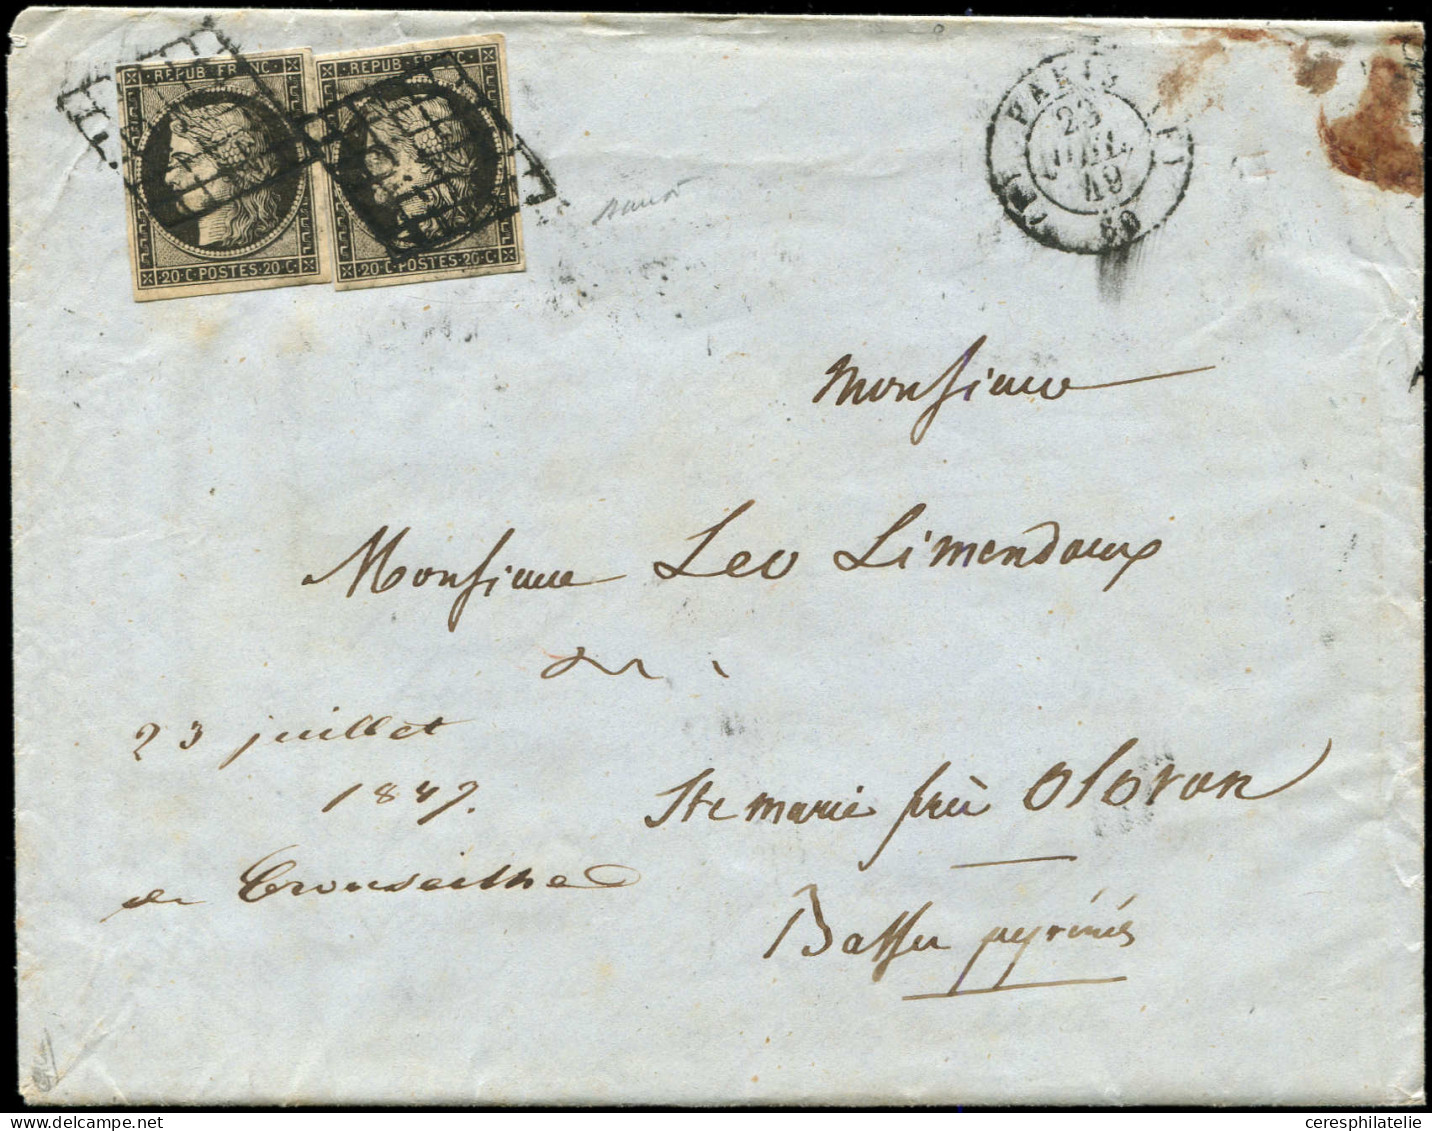 REPUB FRANC
REPUB FRANC
20·C·POSTES·20·C
20·C·POSTES·20·C
PARIS
23
JUIL.
49
60
Monsieur
Monsieur Leo Limendoux
23 juillet
1849.
Ste marie près Oloron
de
Basses pyrénées
ceresphilatelie